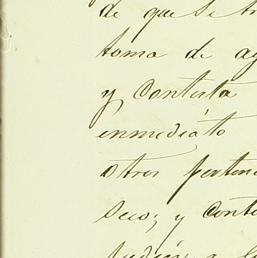 de que se tr
toma de ag
y contesta
inmediato
otros perten
seco; y conte